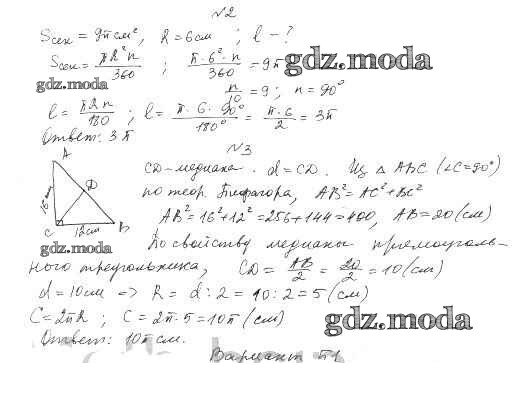 №2
Sсек = 9π см², R = 6 см ; l - ?
Sсек = πR²n/360 ; π·6²·n/360 = 9π
gdz.moda
gdz.moda
n/10 = 9 ; n = 90°
l = πRn/180 ; l = π·6·90°/180° = π·6/2 = 3π
Ответ: 3π
№3
A
CD - медиана. d = CD. Из △ABC (∠C=90°)
D
по теор. Пифагора, AB² = AC² + BC²
16 см
AB² = 16² + 12² = 256 + 144 = 400, AB = 20 (см)
C 12см B
gdz.moda
По свойству медианы прямоуголь-
ного треугольника, CD = AB/2 = 20/2 = 10 (см)
d = 10 см => R = d : 2 = 10 : 2 = 5 (см)
C = 2πR ; C = 2π·5 = 10π (см)
gdz.moda
Ответ: 10π см.
Вариант П1